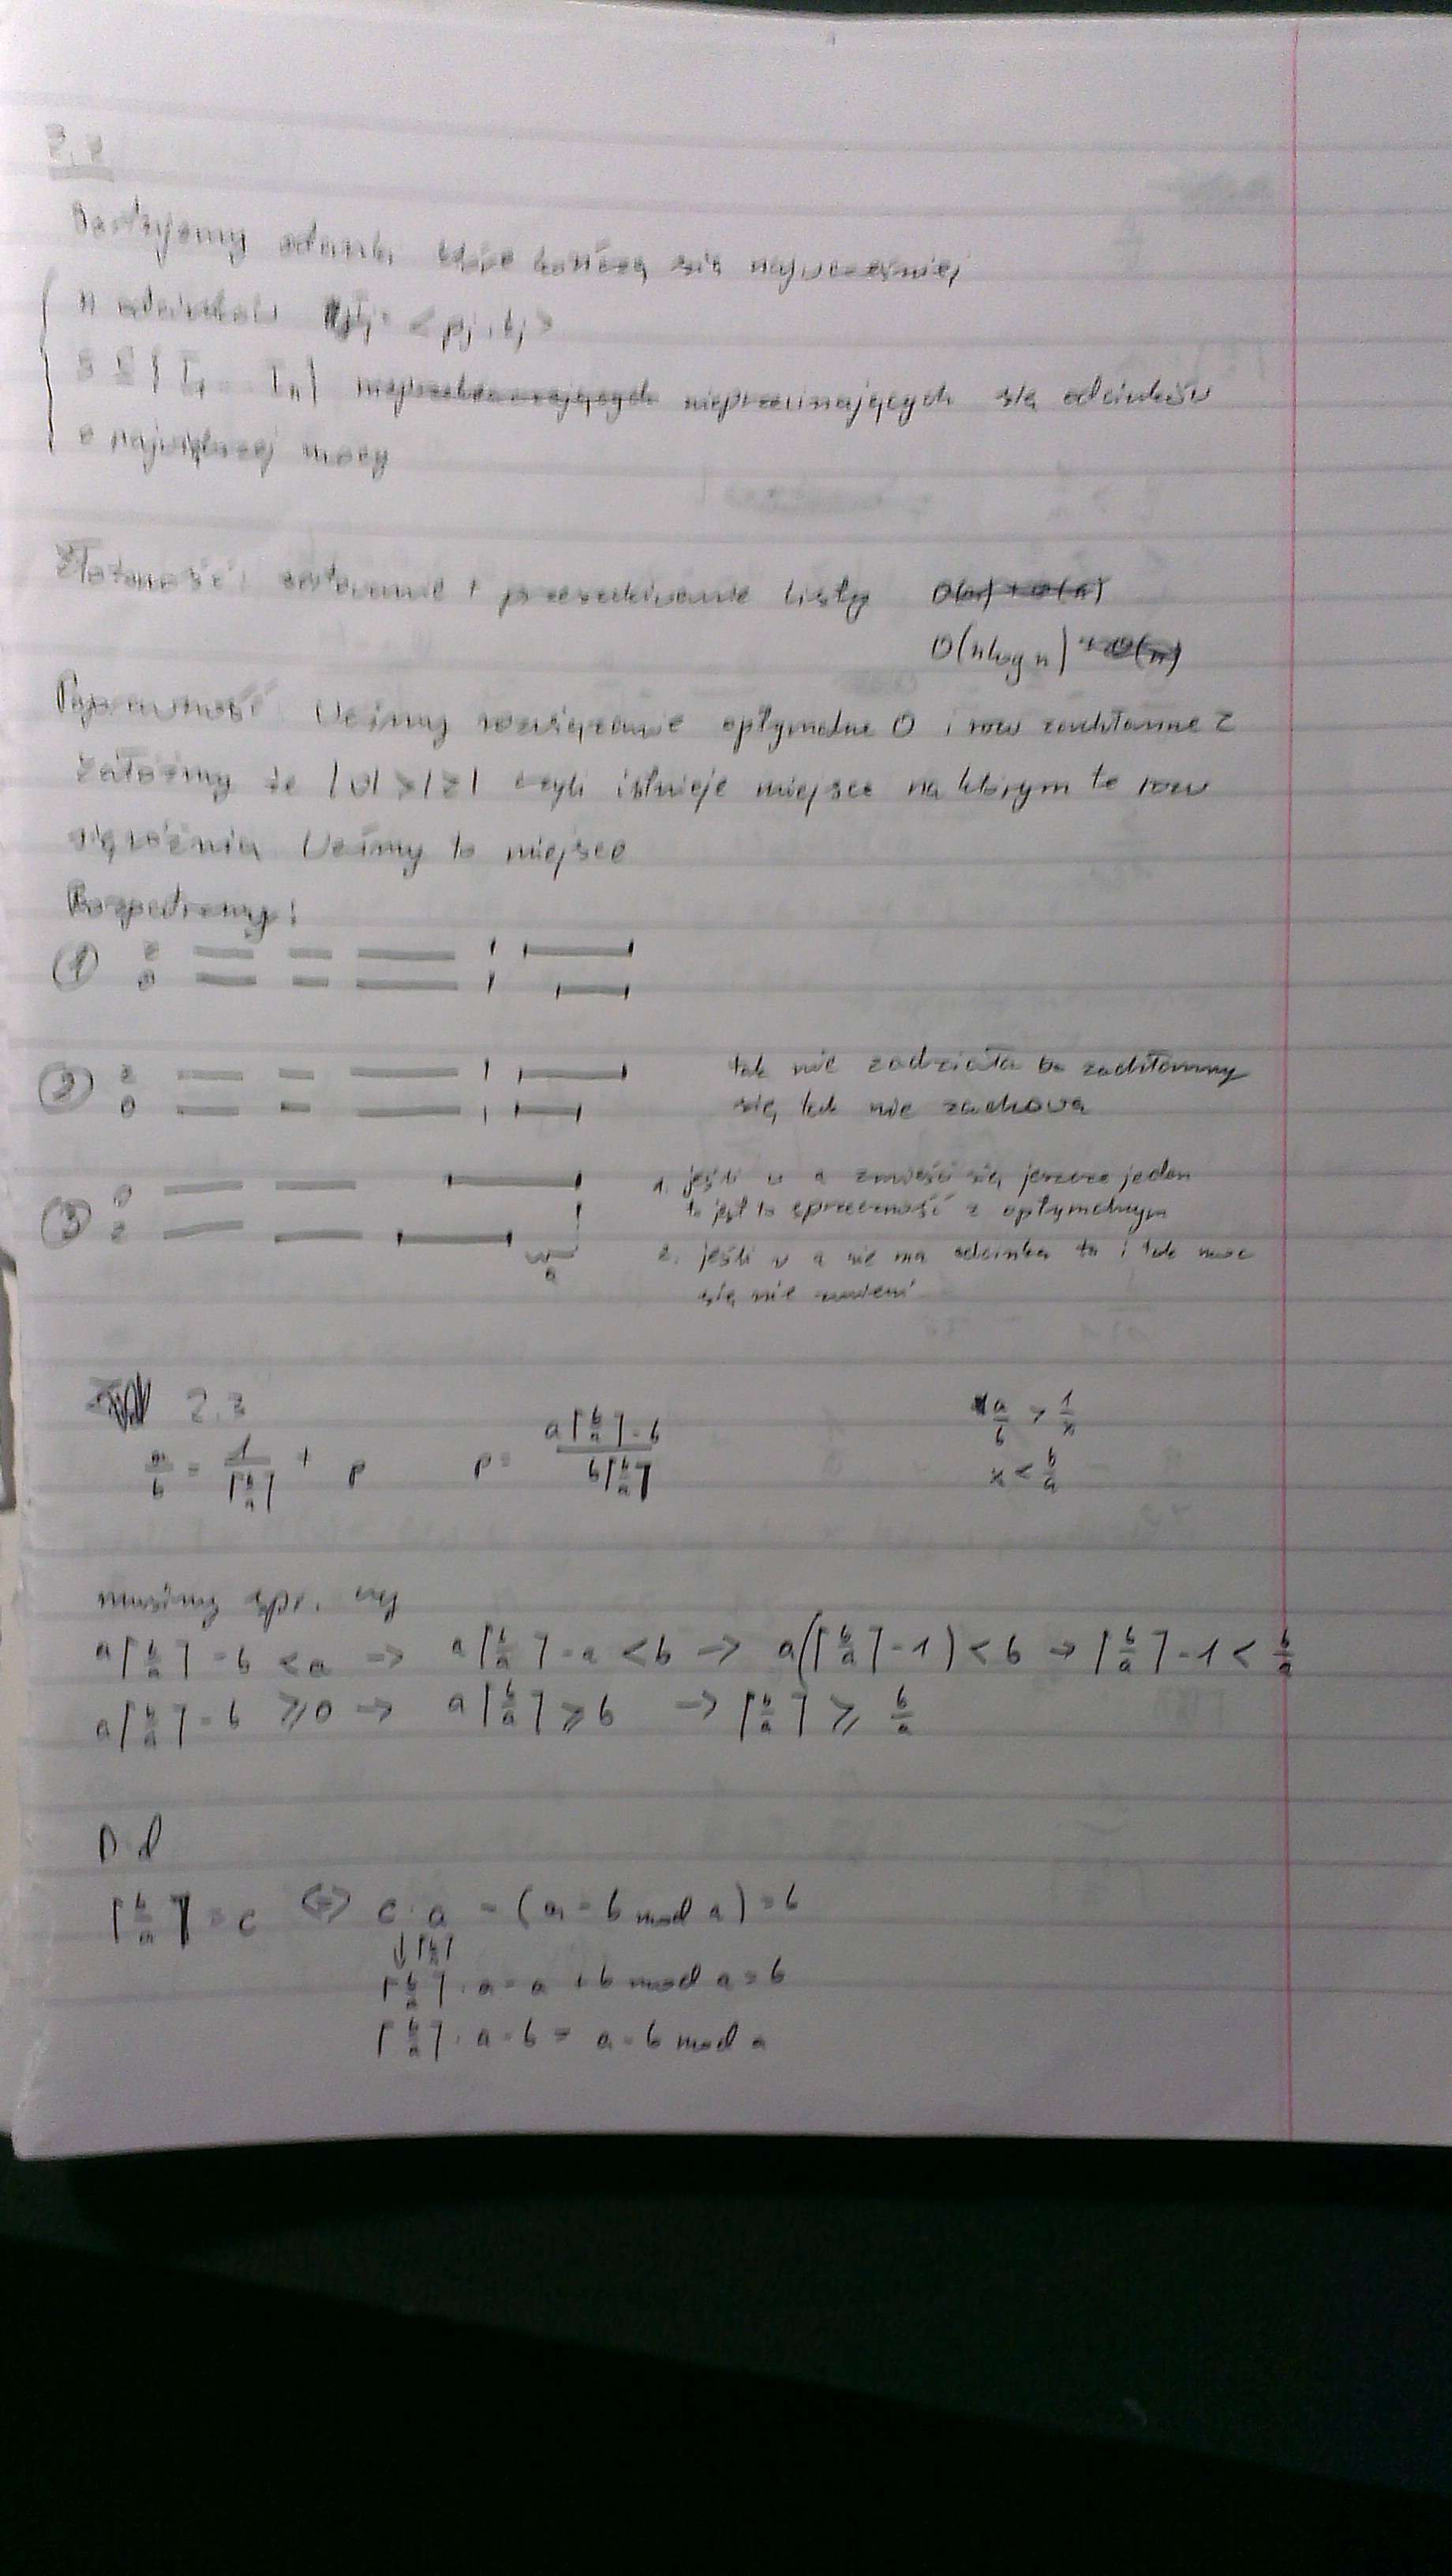 2.2
Sortujemy odcinki które kończą się najwcześniej
n odcinków Ij = < pj, kj >
S ⊆ { I1 ... In } nieprzecinających się odcinków
o największej mocy
Złożoność: sortowanie + przeszukiwanie listy O(n) + O(n)
O(n log n) + O(n)
Poprawność Weźmy rozwiązanie optymalne O i rozw zachłanne Z
załóżmy że |O| > |Z| czyli istnieje miejsce na którym te rozw
się różnią Weźmy to miejsce
Rozpatrzmy:
① z
o
② z tak nie zadziała bo zachłanny
o się tak nie zachowa
③ o 1. jeśli w a zmieści się jeszcze jeden
to jest to sprzeczność z optymalnym
z 2. jeśli w a nie ma odcinka to i tak moc
a się nie zmieni
2.3
a/b = 1/⌈b/a⌉ + p p = (a⌈b/a⌉ - b)/(b⌈b/a⌉) a/b > 1/x
x < b/a
musimy spr. czy
a⌈b/a⌉ - b < a → a⌈b/a⌉ - a < b → a(⌈b/a⌉ - 1) < b → ⌈b/a⌉ - 1 < b/a
a⌈b/a⌉ - b ≥ 0 → a⌈b/a⌉ ≥ b → ⌈b/a⌉ ≥ b/a
D-d
⌈b/a⌉ = c ⇔ c · a - (a - b mod a) = b
↓ ⌈b/a⌉
⌈b/a⌉ · a - a + b mod a = b
⌈b/a⌉ · a - b = a - b mod a